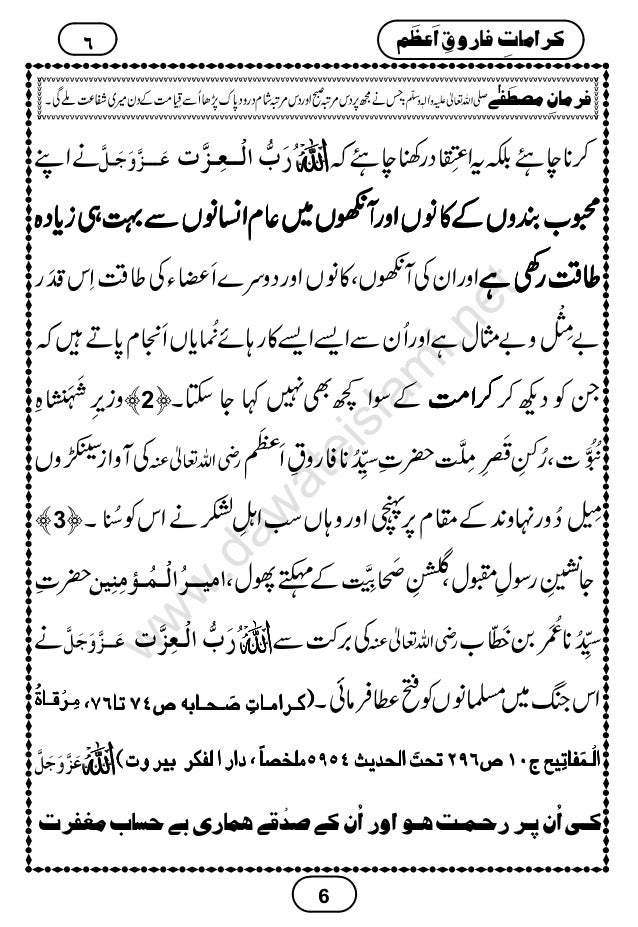 کراماتِ فاروقِ اَعظَم
٦
فرمانِ مصطَفٰے صلی اللہ تعالیٰ علیہ واٰلہٖ وسلّم: جس نے مجھ پر دس مرتبہ صبح اور دس مرتبہ شام درودِ پاک پڑھا اُسے قِیامت کے دن میری شفاعت ملے گی۔
کرنا چاہئے بلکہ یہ اعتِقاد رکھنا چاہئے کہ اللّٰہُ رَبُّ الْعِزَّت عَزَّوَجَلَّ نے اپنے
محبوب بندوں کے کانوں اور آنکھوں میں عام انسانوں سے بہت ہی زیادہ
طاقت رکھی ہے اور ان کی آنکھوں، کانوں اور دوسرے اَعضاء کی طاقت اِس قدَر
بے مِثْل و بے مثال ہے اور اُن سے ایسے ایسے کارہائے نُمایاں اَنجام پاتے ہیں کہ
جن کو دیکھ کر کرامت کے سوا کچھ بھی نہیں کہا جا سکتا۔﴿2﴾ وزیرِ شَہَنشاہِ
نُبُوَّت، رُکنِ قَصرِ مِلَّت حضرتِ سیِّدُنا فاروقِ اَعظَم رضی اللہ تعالیٰ عنہ کی آواز سینکڑوں
مِیل دُور نہاوند کے مقام پر پہنچی اور وہاں سب اہلِ لشکر نے اس کو سُنا ۔﴿3﴾
جانشینِ رسولِ مقبول، گلشنِ صَحابیَّت کے مہکتے پھول، امیرُ الْمُؤمِنِین حضرتِ
سیِّدُنا عُمَر بن خَطّاب رضی اللہ تعالیٰ عنہ کی برکت سے اللّٰہُ رَبُّ الْعِزَّت عَزَّوَجَلَّ نے
اس جنگ میں مسلمانوں کو فتح عطا فرمائی۔ (کراماتِ صَحابہ ص٧٤ تا٧٦، مِرْقاۃُ
الْمَفاتِیح ج١٠ ص٢٩٦ تحتَ الحدیث ٥٩٥٤ ملخصاً، دارالفکر بیروت) اللّٰہ عَزَّوَجَلَّ
کی اُن پر رحمت ہو اور اُن کے صدْقے ہماری بے حساب مغفرت
6
www.dawateislami.net